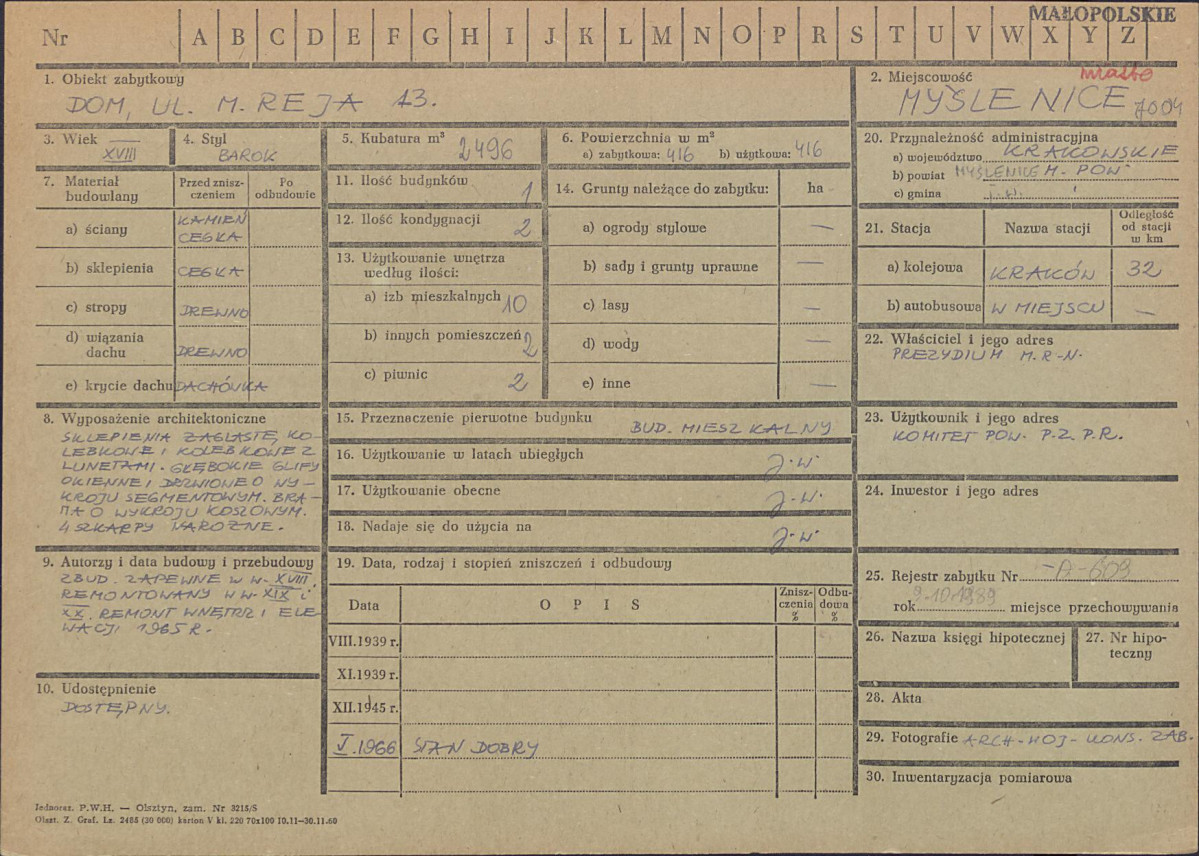 MAŁOPOLSKIE
Nr A B C D E F G H I J K L M N O P R S T U V W X Y Z
1. Obiekt zabytkowy
DOM, UL. M. REJA 13.
2. Miejscowość
miasto
MYŚLENICE 7004
3. Wiek
XVIII
4. Styl
BAROK
5. Kubatura m³ 2496
6. Powierzchnia w m²
a) zabytkowa: 416 b) użytkowa: 416
7. Materiał budowlany
Przed zniszczeniem
Po odbudowie
a) ściany KAMIEŃ
CEGŁA
b) sklepienia CEGŁA
c) stropy DREWNO
d) wiązania dachu DREWNO
e) krycie dachu DACHÓWKA
8. Wyposażenie architektoniczne
SKLEPIENIA ŻAGLASTE, KO-
LEBKOWE I KOLEBKOWE Z
LUNETAMI. GŁĘBOKIE GLIFY
OKIENNE I DRZWIOWE O WY-
KROJU SEGMENTOWYM. BRA-
MA O WYKROJU KOSZOWYM.
4 SZKARPY NAROŻNE.
9. Autorzy i data budowy i przebudowy
ZBUD. ZAPEWNE W W. XVIII.
REMONTOWANY W W. XIX i
XX. REMONT WNĘTRZ I ELE-
WACJI 1965 R.
10. Udostępnienie
DOSTĘPNY.
11. Ilość budynków 1
12. Ilość kondygnacji 2
13. Użytkowanie wnętrza
według ilości:
a) izb mieszkalnych 10
b) innych pomieszczeń 2
c) piwnic 2
14. Grunty należące do zabytku: ha
a) ogrody stylowe —
b) sady i grunty uprawne —
c) lasy —
d) wody —
e) inne —
15. Przeznaczenie pierwotne budynku
BUD. MIESZKALNY
16. Użytkowanie w latach ubiegłych
J.W.
17. Użytkowanie obecne
J.W.
18. Nadaje się do użycia na
J.W.
19. Data, rodzaj i stopień zniszczeń i odbudowy
Data OPIS Zniszczenia % Odbudowa %
VIII.1939 r.
XI.1939 r.
XII.1945 r.
V.1966 STAN DOBRY
20. Przynależność administracyjna
a) województwo KRAKOWSKIE
b) powiat MYŚLENICE M. POW
c) gmina
21. Stacja Nazwa stacji Odległość od stacji w km
a) kolejowa KRAKÓW 32
b) autobusowa W MIEJSCU —
22. Właściciel i jego adres
PREZYDIUM M.R.N.
23. Użytkownik i jego adres
KOMITET POW. P.Z.P.R.
24. Inwestor i jego adres
25. Rejestr zabytku Nr A-609
rok 9.10.1989 miejsce przechowywania
26. Nazwa księgi hipotecznej
27. Nr hipo-
teczny
28. Akta
29. Fotografie ARCH. WOJ. KONS. ZAB.
30. Inwentaryzacja pomiarowa
Jednoraz. P.W.H. — Olsztyn, zam. Nr 3215/S
Olszt. Z. Graf. Lz. 2485 (30 000) karton V kl. 220 70x100 10.11—30.11.60